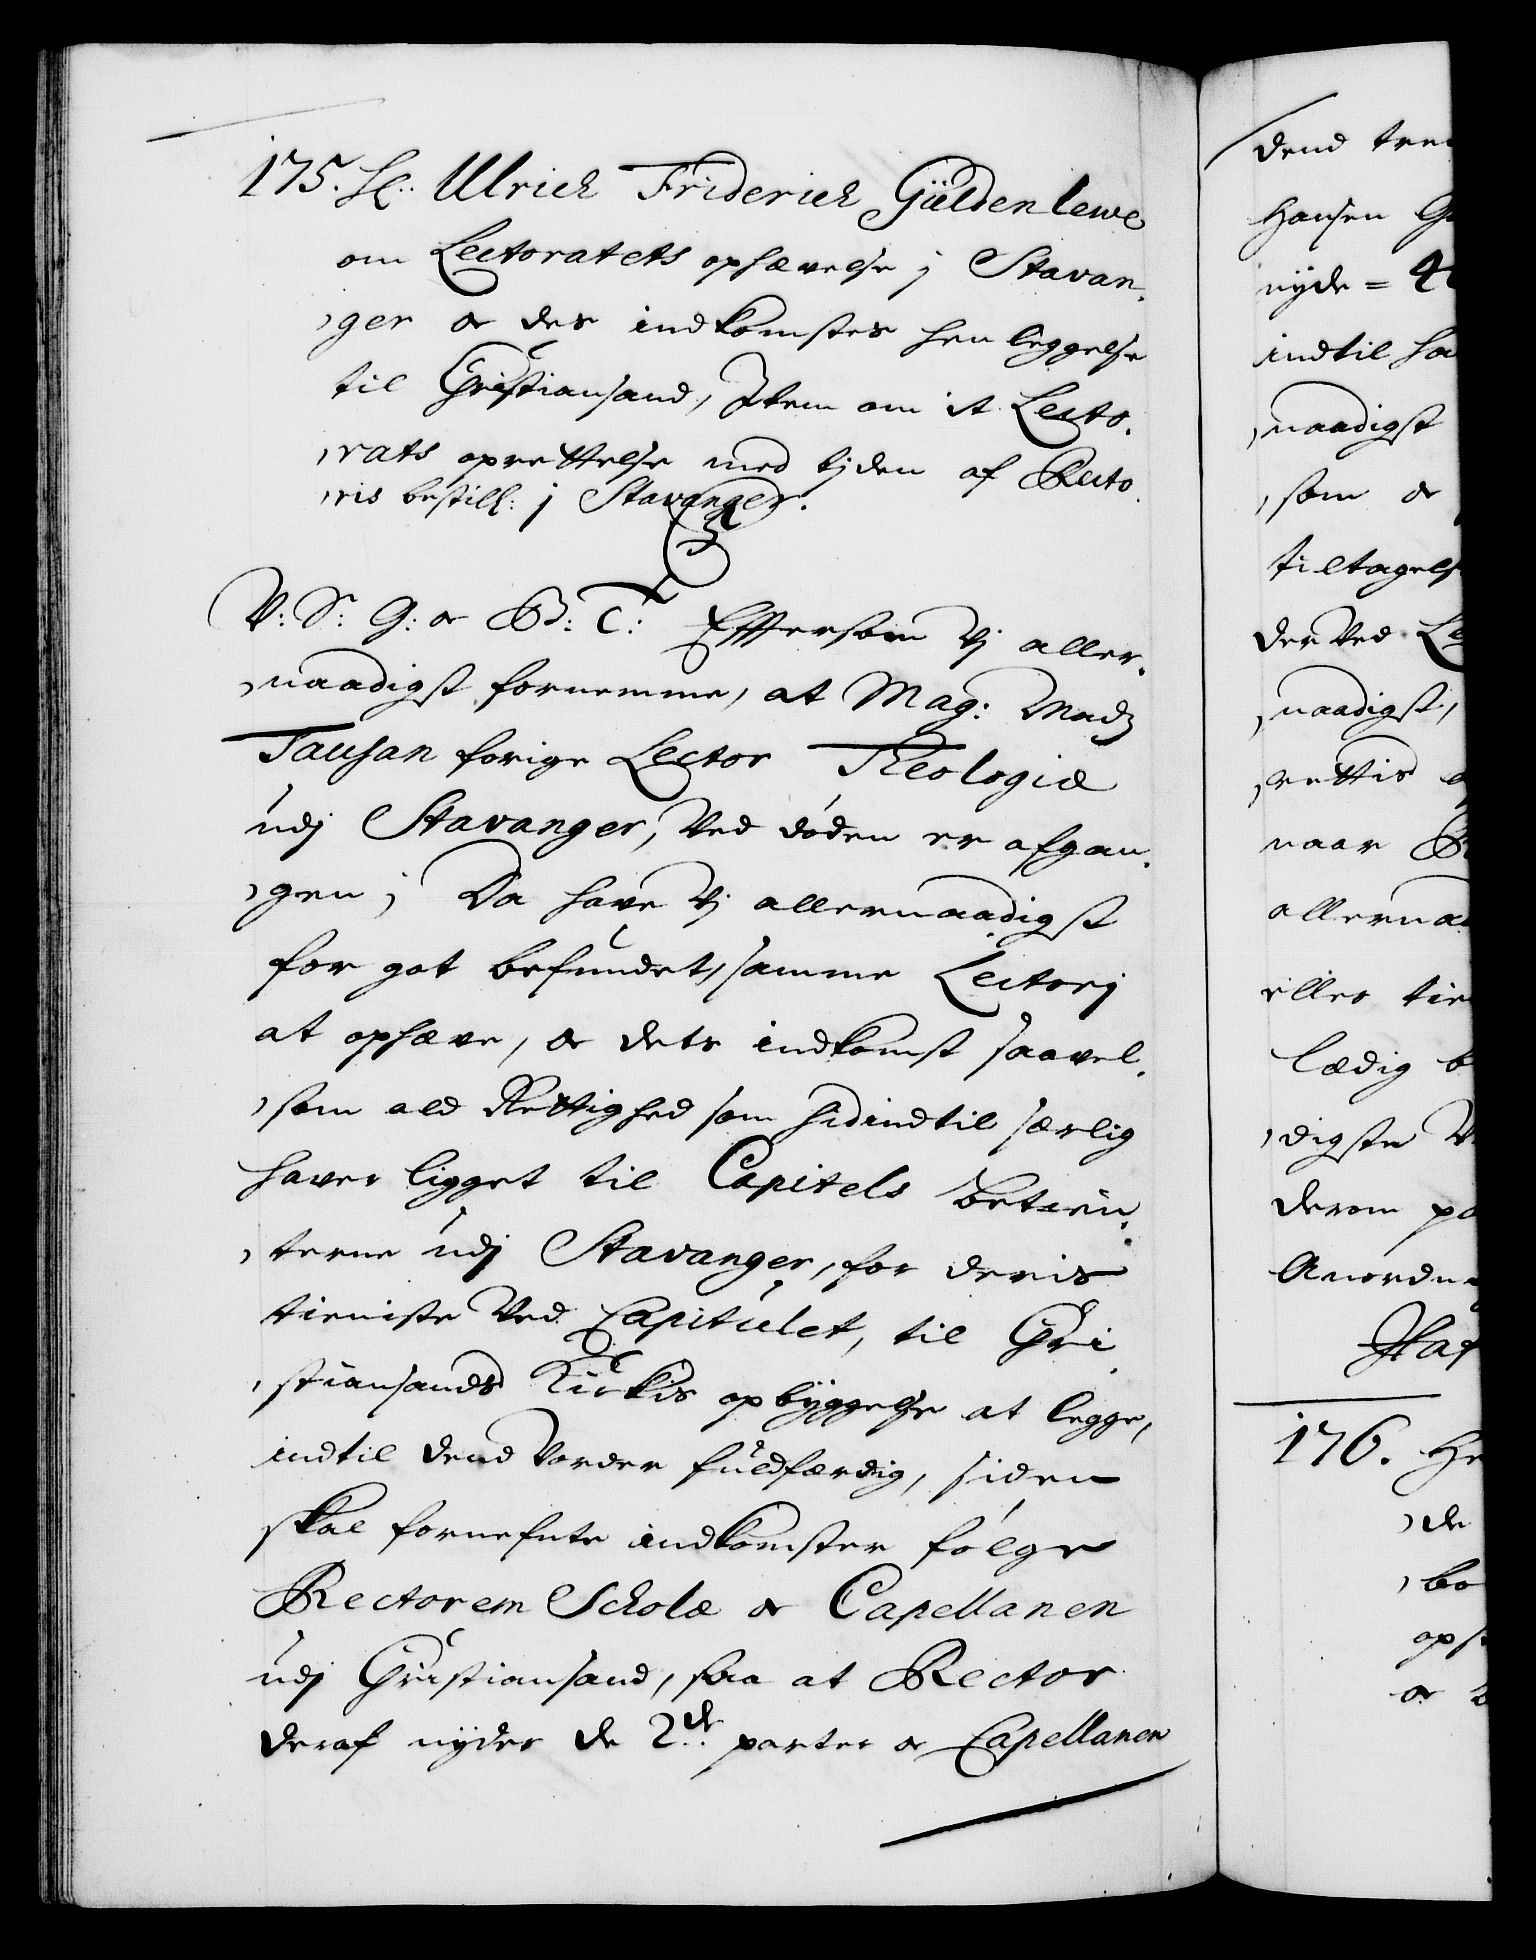 175. H: Ulrich Friderich Gÿldenlewe
om Lectoratets ophævelse j Stavan-
ger oc des indkomstes hen leggelse
til Christiansand, Item om it Lecto-
rats oprettelse med tiden af Recto-
ris bestill: j Stavanger.
V: S: G: oc B: T: Effterson Vj aller-
naadigst fornemme, at Mag: Madz
Tausan forige Lector Theologiæ
udj Stavanger, Ved døden er afgan-
gen; Da have Vj allernaadigst
for got befundet, samme Lectorj
at ophæve, oc dets indkomst saavel-
som ald Rettighed som hidindtil særlig
haver ligget til Capitels betien-
terne udj Stavanger, for deris
tieniste Ved Capitulet, til Chri-
stiansands Kirkis opbyggelse at legge,
indtil dend Vorder fuldfærdig, siden
skal fornefnte indkomster følge
Rectorem Scholæ oc Capellanen
udj Christiansand, saa at Rector
deraf nyder de 2de parter oc Capellanen
dend
Hansen
nyde =
indtil
naadigst
som oc
der Ved
naadigst,
rettis
naar
eller
lædig
digste
derom
176.
de
oc